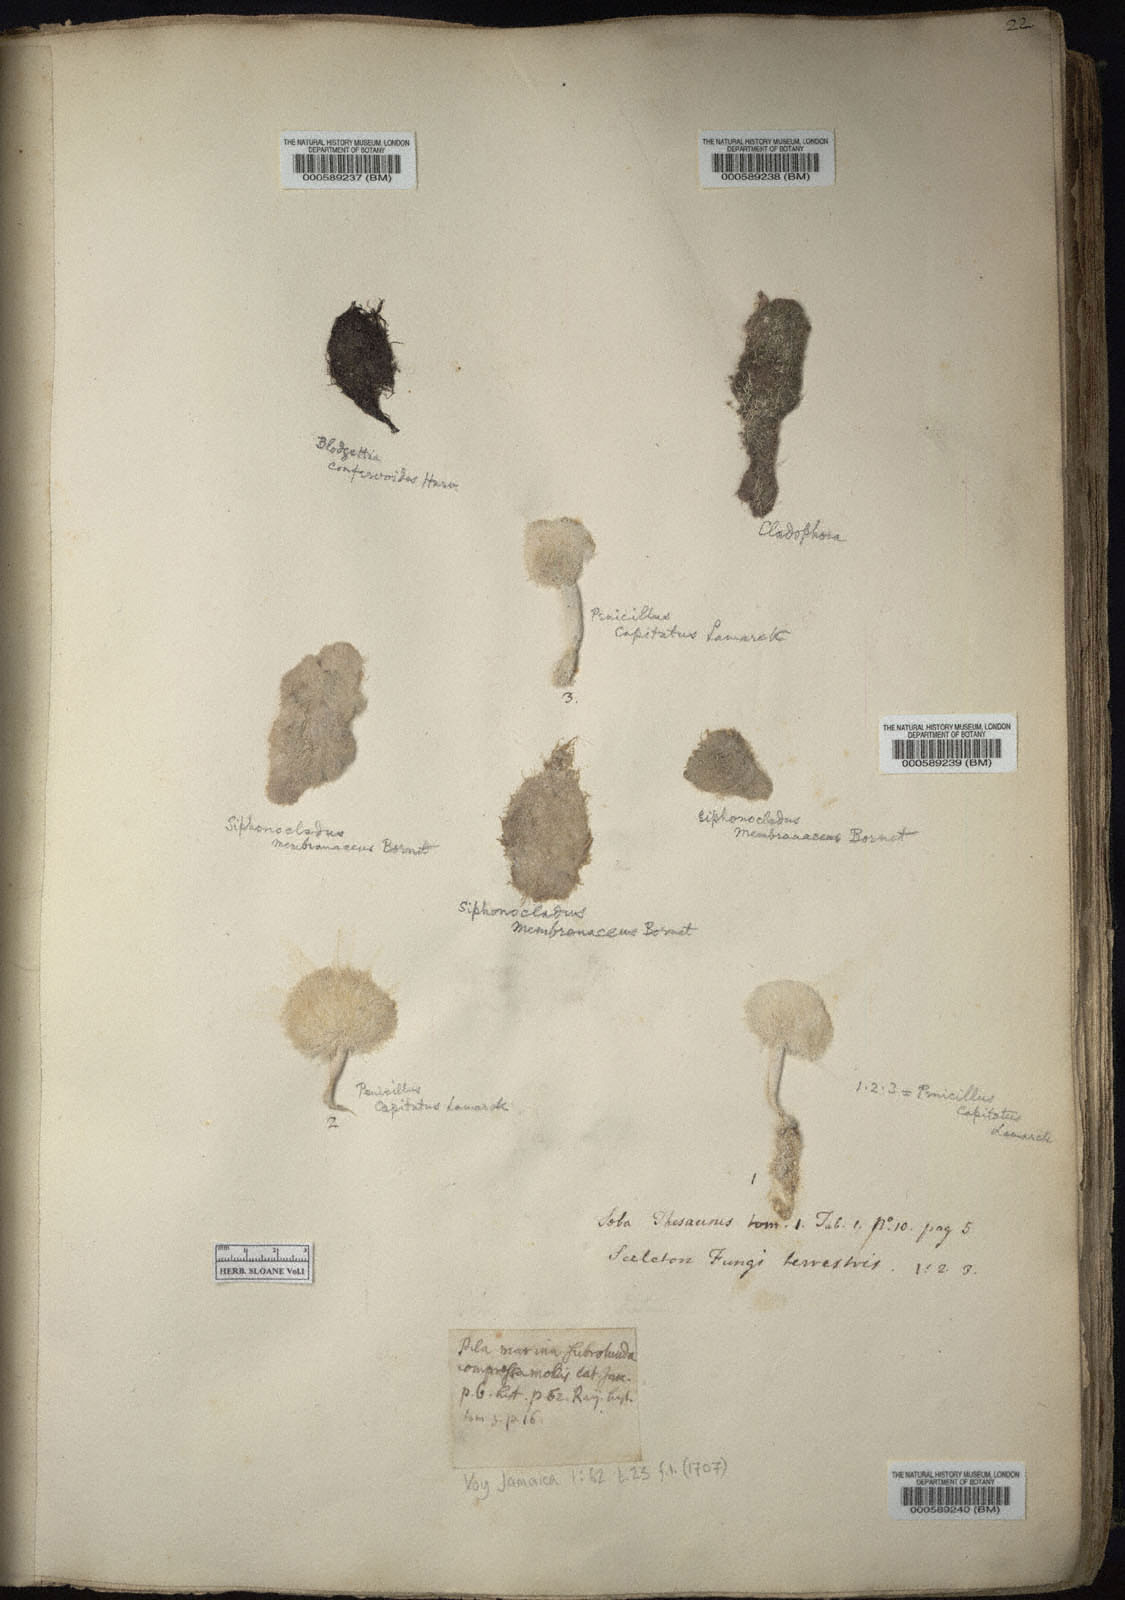 22
THE NATURAL HISTORY MUSEUM, LONDON
DEPARTMENT OF BOTANY
000589237 (BM)
THE NATURAL HISTORY MUSEUM, LONDON
DEPARTMENT OF BOTANY
000589238 (BM)
Blodgettia
confervoides Harv.
Cladophora
Penicillus
Capitatus Lamarck
3.
THE NATURAL HISTORY MUSEUM, LONDON
DEPARTMENT OF BOTANY
000589239 (BM)
Siphonocladus
membranaceus Bornet
Siphonocladus
membranaceus Bornet
Siphonocladus
membranaceus Bornet
Penicillus
Capitatus Lamarck
2
1.2.3 = Penicillus
Capitatus
Lamarck
1
Seba Thesaurus tom. 1. Tab. 1. no. 10. pag 5
Sceleton Fungi terrestris. 1. 2 3.
mm 1 2 3
HERB. SLOANE Vol.1
Pila marina subrotunda
compressa mollis Cat. Jam.
p. 6. hist. p. 62. Raij. hist.
tom 3. p. 16.
Voy Jamaica 1: 62 t.23 f.1. (1707)
THE NATURAL HISTORY MUSEUM, LONDON
DEPARTMENT OF BOTANY
000589240 (BM)